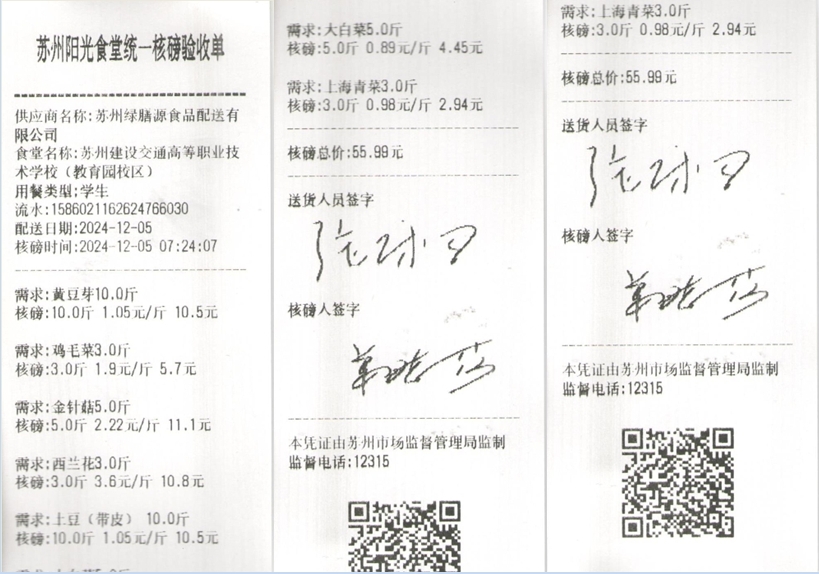 苏州阳光食堂统一核磅验收单
供应商名称:苏州绿膳源食品配送有
限公司
食堂名称:苏州建设交通高等职业技
术学校（教育园校区）
用餐类型:学生
流水:1586021162624766030
配送日期:2024-12-05
核磅时间:2024-12-05 07:24:07
需求:黄豆芽10.0斤
核磅:10.0斤 1.05元/斤 10.5元
需求:鸡毛菜3.0斤
核磅:3.0斤 1.9元/斤 5.7元
需求:金针菇5.0斤
核磅:5.0斤 2.22元/斤 11.1元
需求:西兰花3.0斤
核磅:3.0斤 3.6元/斤 10.8元
需求:土豆（带皮） 10.0斤
核磅:10.0斤 1.05元/斤 10.5元
需求:大白菜5.0斤
核磅:5.0斤 0.89元/斤 4.45元
需求:上海青菜3.0斤
核磅:3.0斤 0.98元/斤 2.94元
核磅总价:55.99元
送货人员签字
核磅人签字
本凭证由苏州市场监督管理局监制
监督电话:12315
需求:上海青菜3.0斤
核磅:3.0斤 0.98元/斤 2.94元
核磅总价:55.99元
送货人员签字
核磅人签字
本凭证由苏州市场监督管理局监制
监督电话:12315